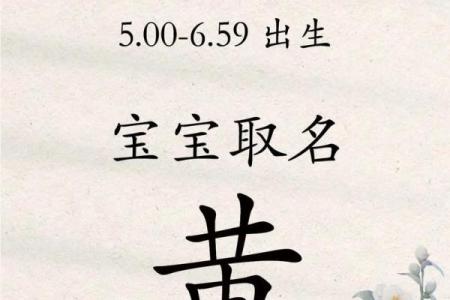 5.00-6.59 出生
宝宝取名
黄